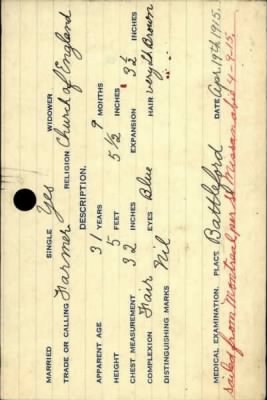 MARRIED SINGLE Yes WIDOWER
TRADE OR CALLING Farmer RELIGION Church of England
DESCRIPTION.
APPARENT AGE 31 YEARS 9 MONTHS
HEIGHT 5 FEET 5½ INCHES
CHEST MEASUREMENT 32 INCHES EXPANSION 3½ INCHES
COMPLEXION Fair EYES Blue HAIR very Lt. Brown
DISTINGUISHING MARKS Nil
MEDICAL EXAMINATION. PLACE Battleford DATE Apr. 19th 1915.
Sailed from Montreal per SS Missanabie 4-9-15